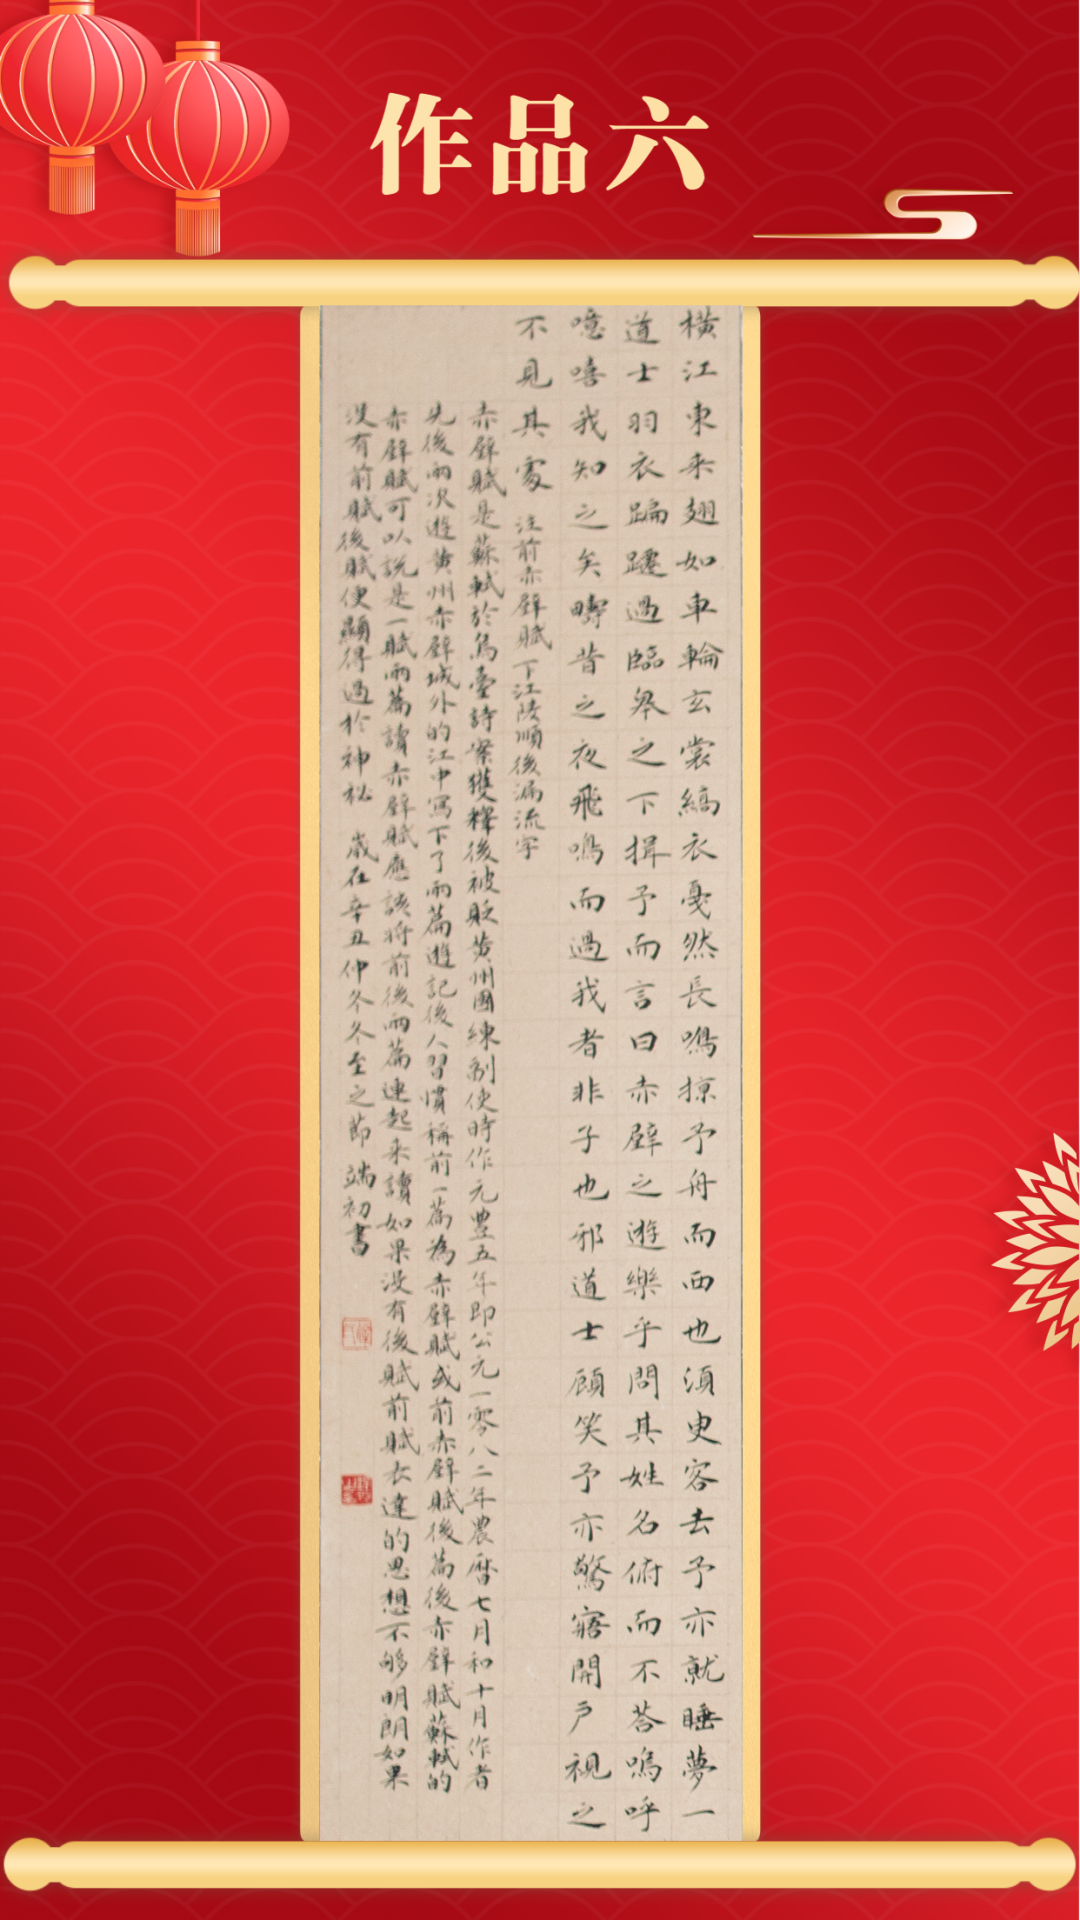 作品六
橫江東来翅如車輪玄裳縞衣戛然長鳴掠予舟而西也須臾客去予亦就睡夢一
道士羽衣蹁躚過臨皋之下揖予而言曰赤壁之遊樂乎問其姓名俯而不荅嗚呼
噫嘻我知之矣疇昔之夜飛鳴而過我者非子也邪道士顧笑予亦驚寤開戶視之
不見其處 注前赤壁賦下江陵順後漏流字
赤壁賦是蘇軾於烏臺詩案獲釋後被貶黄州團練副使時作元豊五年即公元一零八二年農曆七月和十月作者
先後兩次遊黄州赤壁城外的江中寫下了兩篇遊記後人習慣稱前一篇為赤壁賦或前赤壁賦後篇後赤壁賦蘇軾的
赤壁賦可以說是一賦兩篇讀赤壁賦應該将前後兩篇連起来讀如果没有後賦前賦表達的思想不够明朗如果
没有前賦後賦便顯得過於神秘 歲在辛丑仲冬冬至之節 端初書